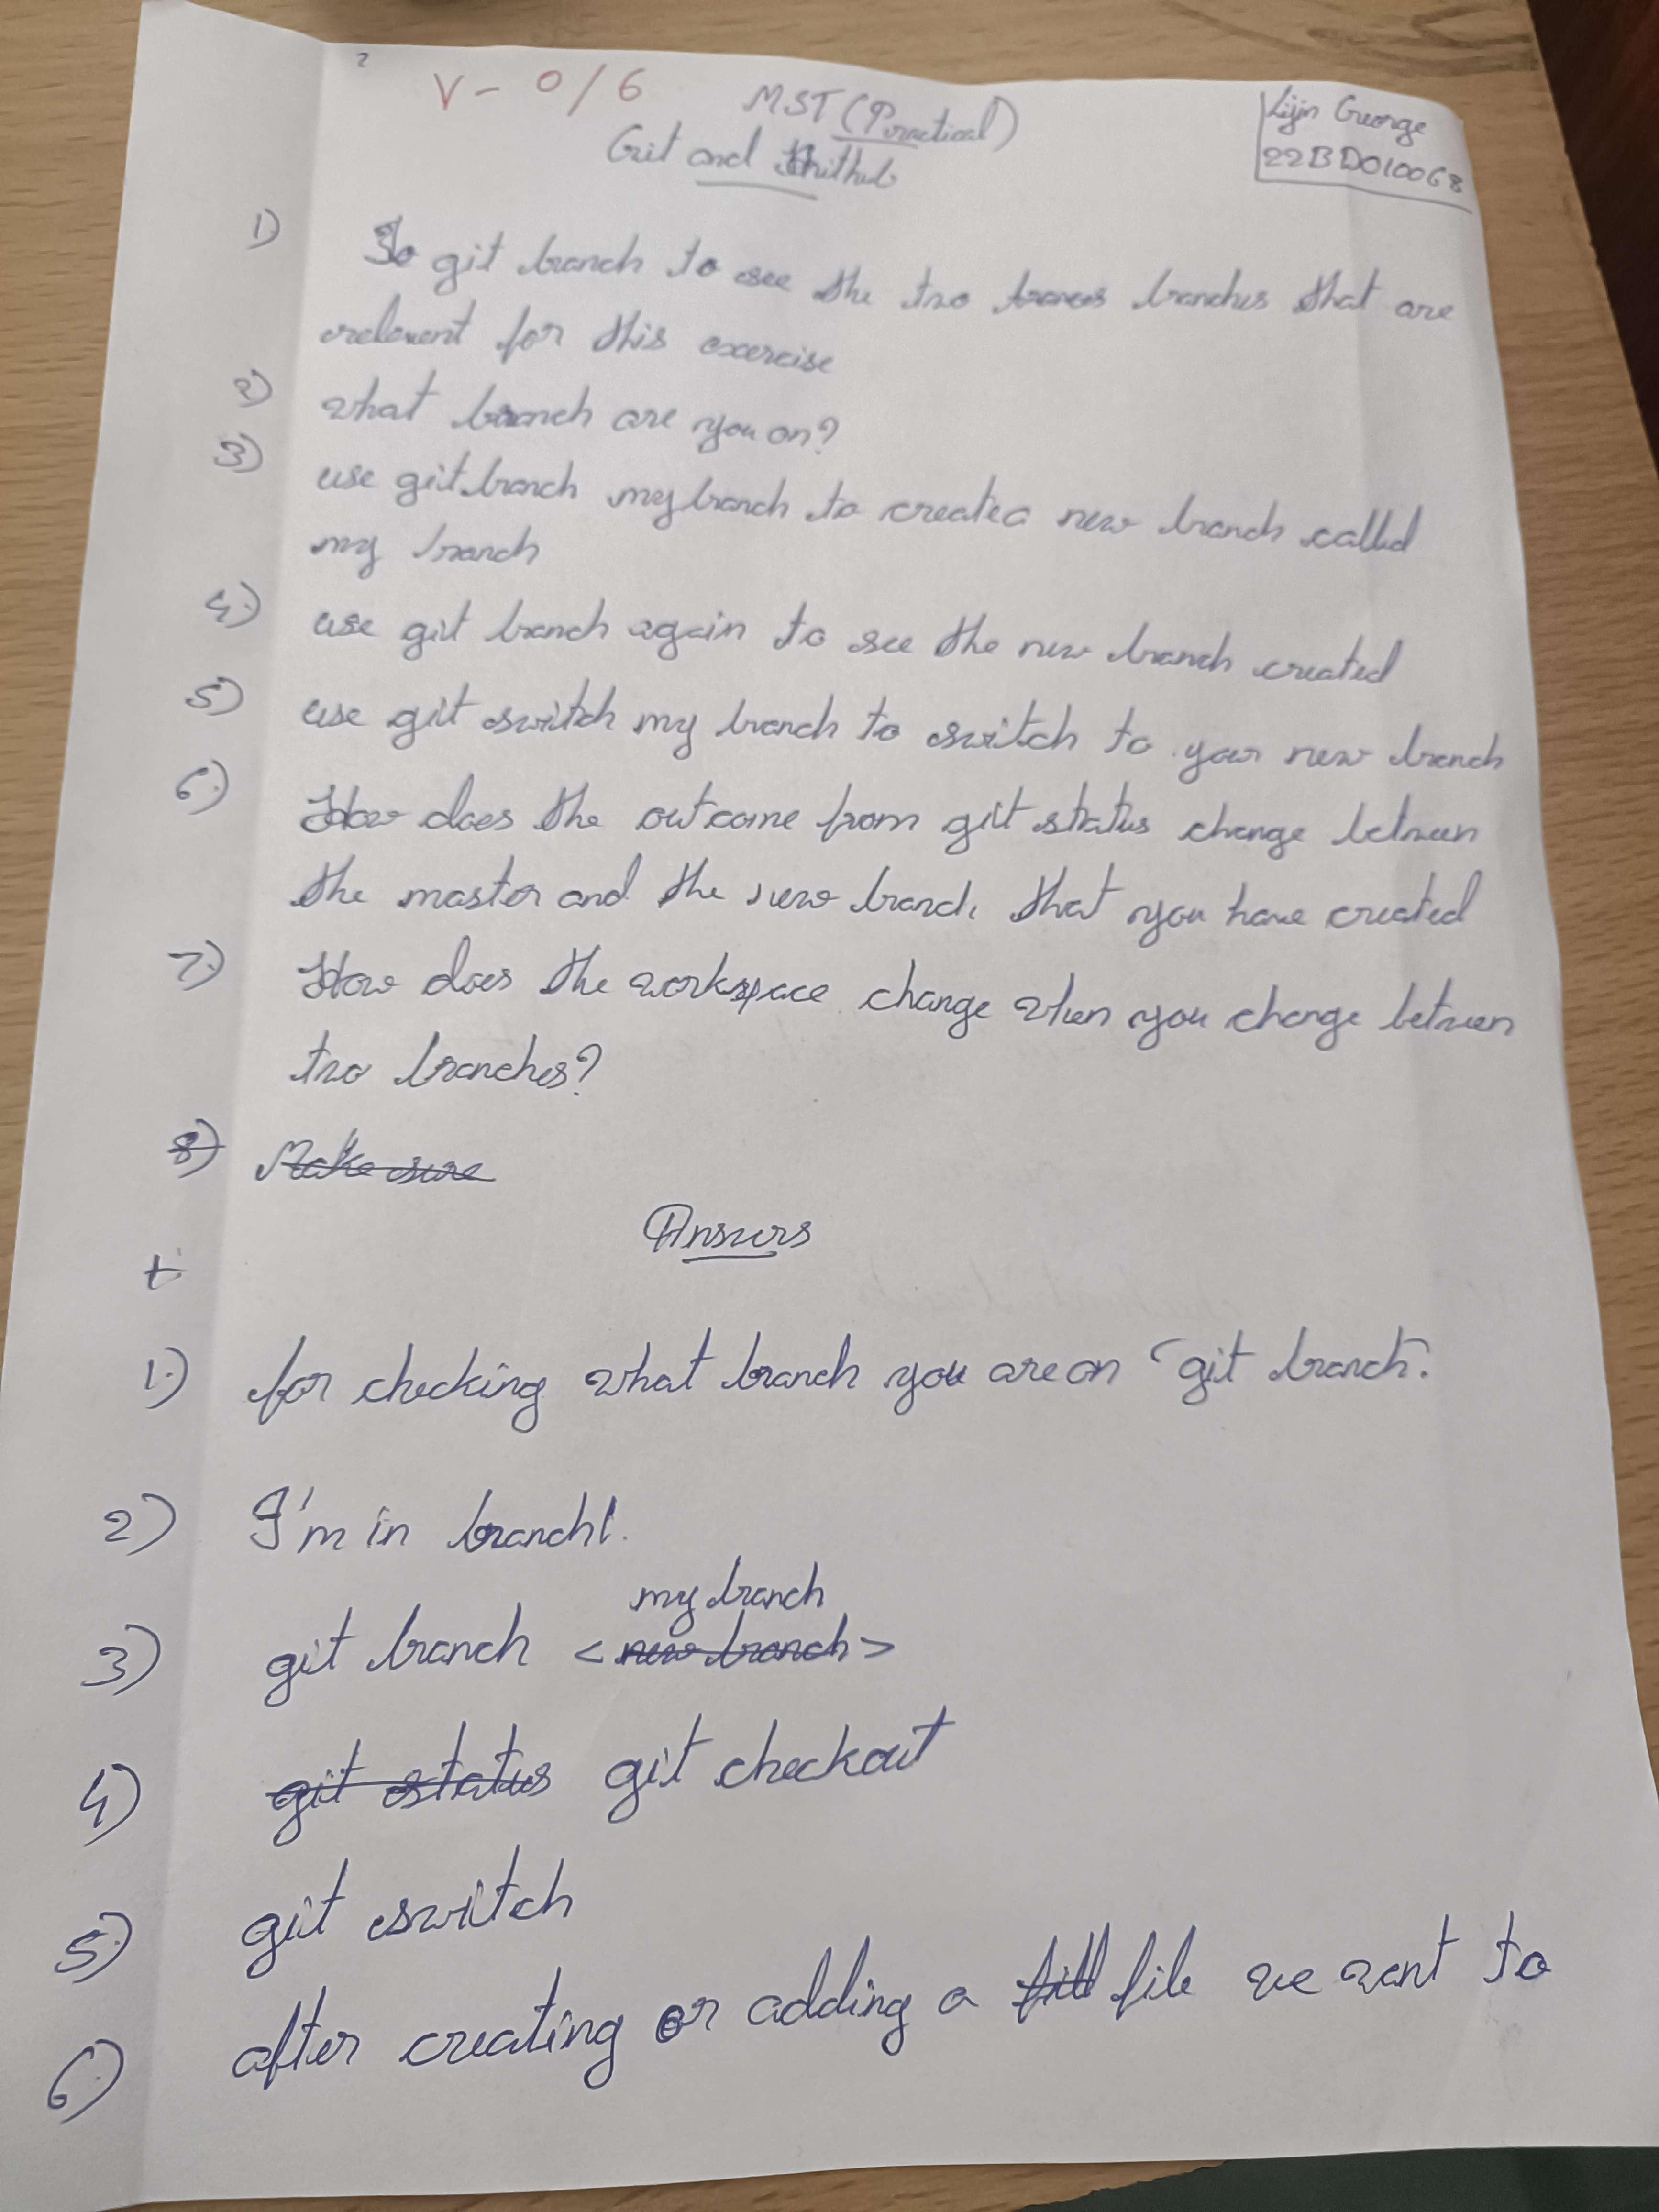 V - 0/6
MST (Practical)
Git and Github
Lijin George
22BD010068
1) To git branch to see the two branches that are
relevant for this exercise
2) what branch are you on?
3) use git branch mybranch to create a new branch called
my branch
4.) use git branch again to see the new branch created
5) use git switch my branch to switch to your new branch
6.) How does the outcome from git status change between
the master and the new branch that you have created
7.) How does the workspace change when you change between
two branches?
8) Make sure
Answers
1.) for checking what branch you are on "git branch".
2) I'm in branch1.
my branch
3) git branch <new branch>
4) git status git checkout
5) git switch
6.) after creating or adding a file we want to